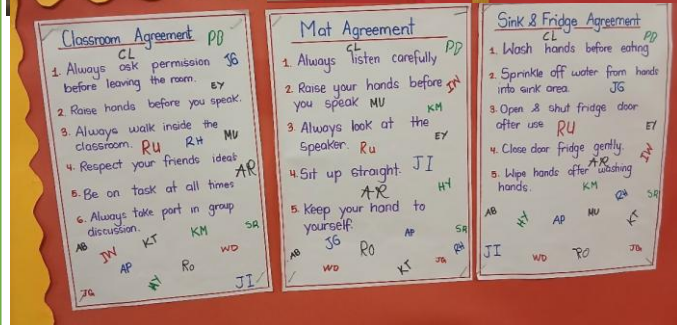 Classroom Agreement PD
CL
1. Always ask permission JG
before leaving the room. EY
2. Raise hands before you speak.
3. Always walk inside the MU
classroom. Ru RH
4. Respect your friends ideas AR
5. Be on task at all times
6. Always take part in group
discussion. KM SR
AB JW KT WD
AP HY Ro
JG JI
Mat Agreement
CL PD
1. Always listen carefully
2. Raise your hands before JW
you speak MU KM
3. Always look at the
Speaker. Ru EY
4. Sit up straight. JI
AR HY
5. Keep your hand to
yourself. AP SR
AB JG Ro RH
WD KT JG
Sink & Fridge Agreement
CL PD
1. Wash hands before eating
2. Sprinkle off water from hands
into sink area JG
3. Open & shut fridge door
after use RU EY
4. Close door fridge gently. JW
AR
5. Wipe hands after washing
hands. KM RH SR
AB HY AP MU
JI WD RO JG